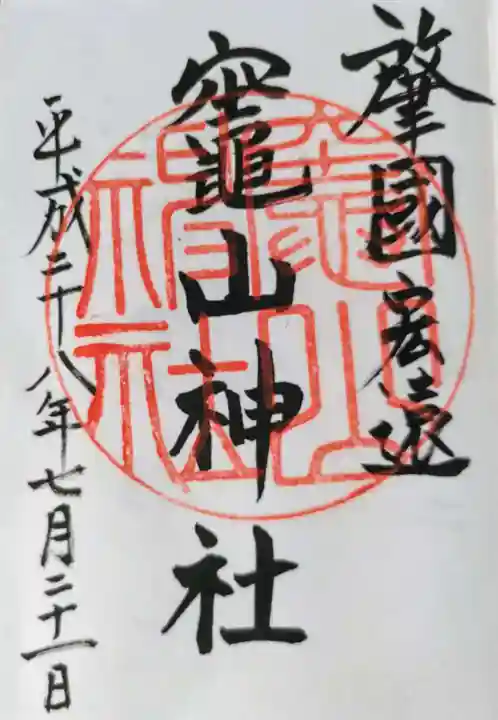 肇國宏遠
竈山神社
平成二十八年七月二十一日
竈山神社